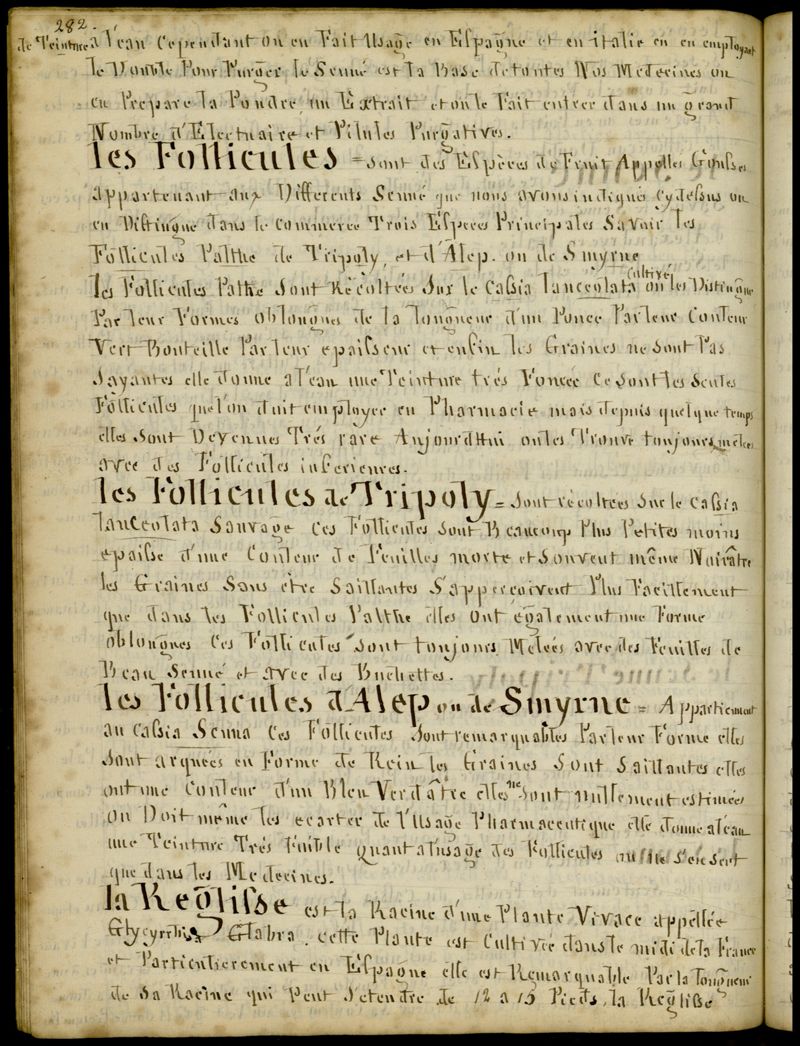 282.
de Teinture a l'eau Cependant on en Fait Usage en Espagne et en italie en en employant
le Double Pour Purger le Senné est la Base de toutes Nos Medecines on
en Prepare la Poudre, un Extrait et on le Fait entrer dans un grand
Nombre d'Electuaire et Pilules Purgatives.
les Follicules = Sont des Espèces de Fruit Appelles Gousses
appartenant aux Differents Senné que nous avons indiqués Cydessus on
en Distingue dans le Commerce Trois Especes Principales Savoir les
Follicules Palthe de Tripoly, et d'Alep. ou de Smyrne
les Follicules Palthe Sont Récoltées Sur le Cassia lanceolata Cultivé on les Distingue
Par leur Formes oblongues de la longueur d'un Pouce Par leur Couleur
Vert Bouteille Par leur epaisseur et enfin les Graines ne Sont Pas
Sayantes elle donne a l'eau une Teinture trés Foncée Ce Sont les Seules
Follicules que l'on doit employer en Pharmacie mais depuis quelque temps
elles Sont Devennes Trés rare Aujourdhui on les Trouve toujours melées
avec des Follicules inferieures.
les Follicules de Tripoly = Sont recoltées Sur le Cassia
lanceolata Sauvage Ces Follicules Sont Beaucoup Plus Petites moins
epaisse d'une Couleur de Feuilles morte et Souvent même Noirâtre
les Graines Sans etre Saillantes S'apperçoivent Plus Facillement
que dans les Follicules Palthe elles ont egalement une Forme
oblongues Ces Follicules Sont toujours Melées avec des Feuilles de
Beau Senné et avec des Buchettes.
les Follicules d'Alep ou de Smyrne = Appartiennent
au Cassia Senna Ces Follicules Sont remarquables Par leur Forme elles
Sont arquées en Forme de Rein les Graines Sont Saillantes elles
ont une Couleur d'un Bleu Verdâtre elles ne Sont nullement estimées
on Doit même les ecarter de l'Usage Pharmaceutique elle donne a l'eau
une Teinture Trés Faible quant a l'usage des Follicules on ne S'en Sert
que dans les Medecines.
la Reglisse est la Racine d'une Plante Vivace appellée
Glabra. Cette Plante est Cultivée dans le midi de la France
et Particulierement en Espagne elle est Remarquable Par la longueur
de Sa Racine qui Peut S'etendre de 12 a 15 Pieds, la Reglisse